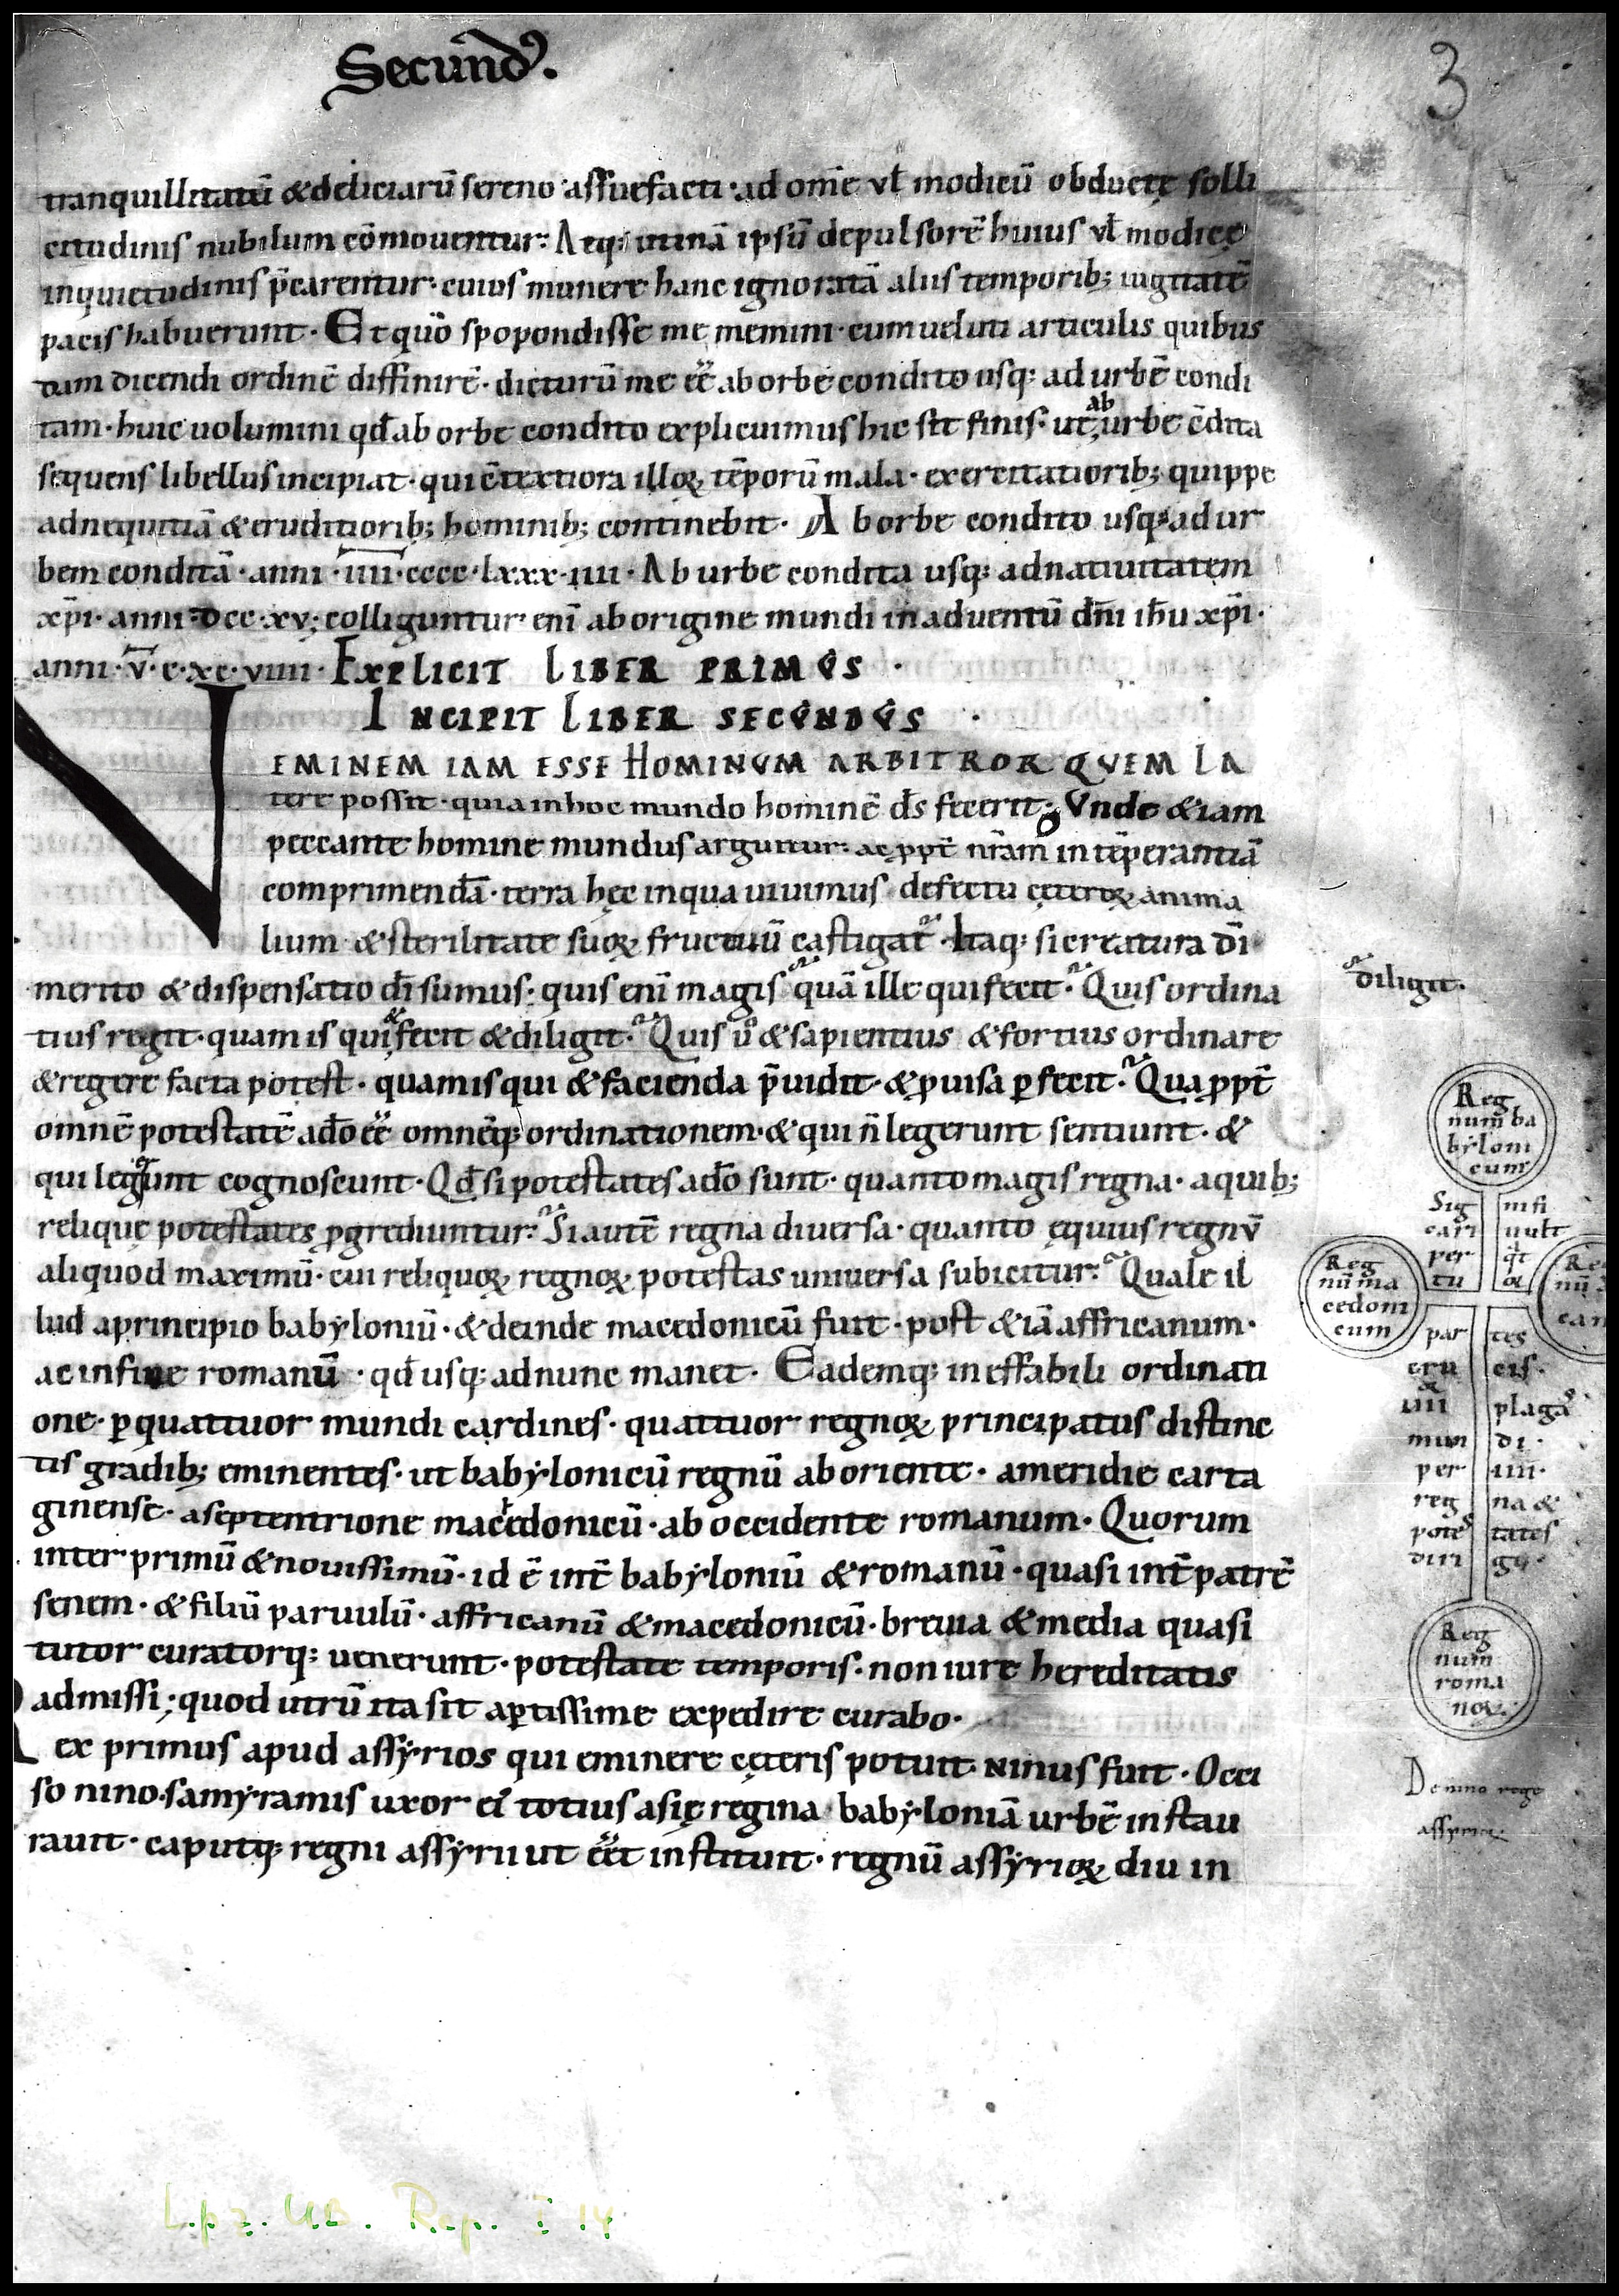 Secund⁹.
3
tranquillitatū &deliciarū sereno assuefacti· ad omē vł modicū obductę solli
citudinis nubilum cōmouentur: Atq; utinā ipsū depulsorē huius vł modicę
inquietudinis p̄carentur· cuius munere hanc ignoratā aliis temporib; iugitatē
pacis habuerunt· Et qūo spopondisse me memini· cum ueluti articulis quibus
dam dicendi ordinē diffinirē· dicturū me ēē ab orbe condito usq; ad urbē condi
tam· huic uolumini qđ ab orbe condito explicuimus hic sit finis· ut ab urbe cōdita
sequens libellus incipiat· qui cōtextiora illoꝝ tēporū mala· exercitatiorib; quippe
ad nequitiā & eruditiorib; hominib; continebit· Ab orbe condito usq; ad ur
bem conditā· anni ·īīīī·cccc·lxxx·iiii· Ab urbe condita usq; ad natiuitatem
xp̄i· anni ·dcc·xv; colliguntur enī ab origine mundi in aduentū dn̄i ih̄u xp̄i·
anni ·v̄·c·xc·viiii· EXPLICIT LIBER PRIMUS ·
INCIPIT LIBER SECUNDUS ·
NEMINEM IAM ESSE HOMINUM ARBITROR QUEM LA
tere possit· quia in hoc mundo hominē ds̄ fecerit· Vnde &iam
peccante homine mundus arguitur· ac ꝓpt̄ nr̄am intēperantiā
comprimendā· terra hęc in qua uiuimus· defectu cęteroꝝ anima
lium & sterilitate suoꝝ fructuū castigat̄· Itaq; si creatura dī
merito & dispensatio dī sumus· quis enī magis quā ille qui fecit· Quis ordina
diligit.
tius regit· quam is qui & fecit & diligit· Quis ů & sapientius & fortius ordinare
& regere facta potest· quam is qui & facienda p̄uidit· & ꝓuisa ꝑfecit· Qua ꝓpt̄
omnē potestatē a dō ēē omnēq; ordinationem· & qui n̄ legerunt sentiunt· &
qui legunt cognoscunt· Qđ si potestates a dō sunt· quanto magis regna· a quib;
reliquę potestates ꝓgrediuntur· Si autē regna diuersa· quanto ęquius regnū
aliquod maximū· cui reliquoꝝ regnoꝝ potestas uniuersa subicitur· Quale il
lud a principio babyloniū· & deinde macedonicū fuit· post &iā affricanum·
ac in fine romanū· qđ usq; ad nunc manet· Eademq; ineffabili ordinati
one· ꝑ quattuor mundi cardines· quattuor regnoꝝ principatus distinc
tis gradib; eminentes· ut babylonicū regnū ab oriente· a meridie carta
ginense· a septentrione macedonicū· ab occidente romanum· Quorum
inter primū & nouissimū· id ē int̄ babyloniū & romanū· quasi int̄ patrē
senem· & filiū paruulū· affricanū & macedonicū· breuia & media quasi
tutor curatorq; uenerunt· potestate temporis· non iure hereditatis
admissi; quod utrū ita sit aꝑtissime expedire curabo·
Rex primus apud assyrios qui eminere cęteris potuit ninus fuit· Occi
so nino· samyramis uxor eī totius asię regina· babyloniā urbē instau
rauit· caputq; regni assyrii ut ēēt instituit· regnū assyrioꝝ diu in
Reg
num ba
byloni
cum
Sig nifi
cari uult
per
tu
Reg
nū ma
cedoni
cum
par tes
cru cis·
iiii plagas
mun di·
per iiii·
reg na &
potes tates
diri gi·
Reg
num
roma
noꝝ
De nino rege
assyrioꝝ
Lpz. UB. Rep. I 14